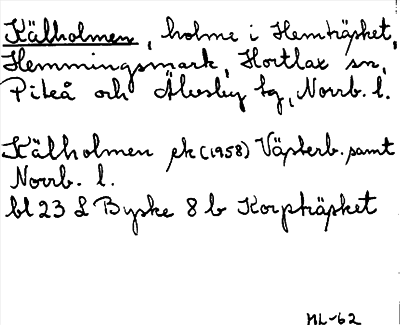 Källholmen, holme i Hemträsket,
Hemmingsmark, Hortlax sn,
Piteå och Älvsby tg, Norrb. l.
Källholmen ek (1958) Västerb. samt
Norrb. l.
bl 23 L Byske 8 b Korpträsket
ML-62